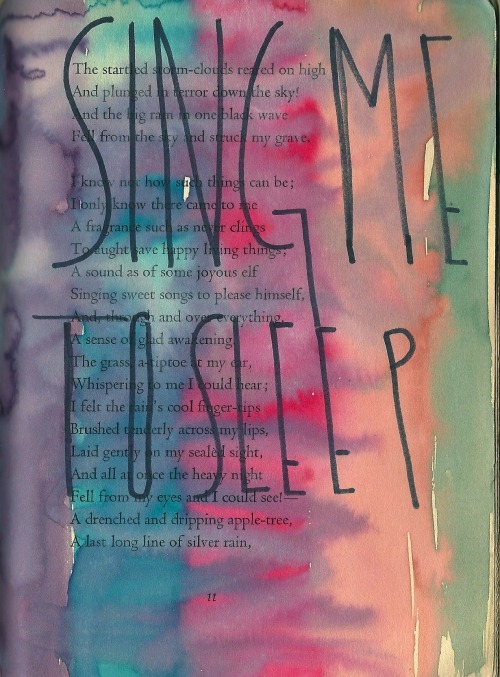 SING ME
TO SLEEP
The startled storm-clouds reared on high
And plunged in terror down the sky!
And the big rain in one black wave
Fell from the sky and struck my grave.
I know not how such things can be;
I only know there came to me
A fragrance such as never clings
To aught save happy living things;
A sound as of some joyous elf
Singing sweet songs to please himself,
And, through and over everything,
A sense of glad awakening.
The grass, a-tiptoe at my ear,
Whispering to me I could hear;
I felt the rain's cool finger-tips
Brushed tenderly across my lips,
Laid gently on my sealèd sight,
And all at once the heavy night
Fell from my eyes and I could see!—
A drenched and dripping apple-tree,
A last long line of silver rain,
11